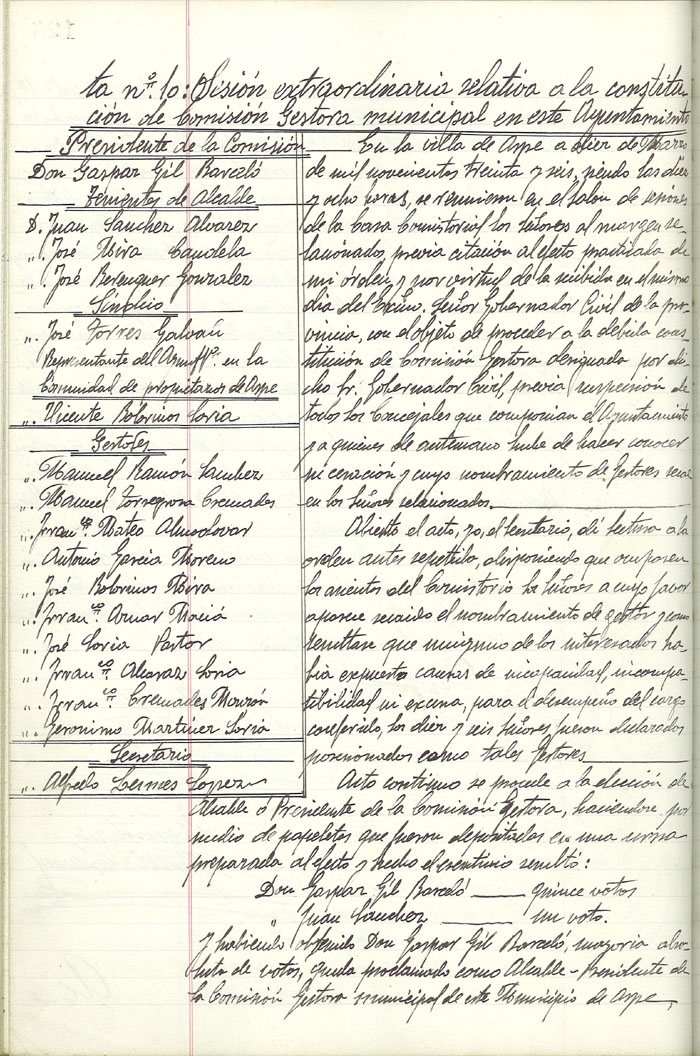 ta nº. 10: Sesión extraordinaria relativa a la constitu-
ción de Comisión Gestora municipal en este Ayuntamiento
Presidente de la Comisión
Don Gaspar Gil Barceló
Tenientes de Alcalde
D. Juan Sanchez Alvarez
„. José Mira Candela
„. José Berenguer Gonzalez
Síndico
„. José Torres Galvañ
Representante del Ayunttº. en la
Comunidad de propietarios de Aspe
„. Vicente Botorinos Soria
Gestores
„. Manuel Ramón Sanchez
„. Manuel Torregrosa Cremades
„. Franco. Mateo Almodovar
„. Antonio Garcia Moreno
„. José Botorinos Mira
„. Franco. Aznar Maciá
„. José Soria Pastor
„. Franco. Alcaraz Soria
„. Franco. Cremades Monzón
„. Geronimo Martinez Soria
Secretario
„. Alfredo Lopez
En la villa de Aspe a diez de Marzo
de mil novecientos treinta y seis, siendo las diez
y ocho horas, se reunieron en el salon de sesiones
de la Casa Consistorial los señores al margen re-
lacionados, previa citación al efecto practicada de
mi órden, y por virtud de la recibida en el mismo
dia del Excmo. Señor Gobernador Civil de la pro-
vincia, con el objeto de proceder a la debida cons-
titución de Comisión Gestora designada por di-
cho Sr. Gobernador Civil, previa suspensión de
todos los Concejales que componian el Ayuntamiento
y a quienes de antemano hube de hacer conocer
su cesación y cuyo nombramiento de Gestores recae
en los señores relacionados.
Abierto el acto, yo, el Secretario, dí lectura a la
orden antes repetida, disponiendo que ocuparen
los asientos del Consistorio los señores a cuyo favor
aparece recaido el nombramiento de gestor y como
resultase que ninguno de los interesados ha-
bia expuesto causas de incapacidad, incompa-
tibilidad ni excusa, para el desempeño del cargo
conferido, los diez y seis señores fueron declarados
posesionados como tales Gestores
Acto continuo se procede a la elección de
Alcalde o Presidente de la Comisión Gestora, haciendose por
medio de papeletas que fueron depositadas en una urna
preparada al efecto y hecho el escrutinio resultó:
Don Gaspar Gil Barceló —— quince votos
„ Juan Sanchez —— un voto.
Y habiendo obtenido Don Gaspar Gil Barceló, mayoria abso-
luta de votos, queda proclamado como Alcalde-Presidente de
la Comisión Gestora municipal de este Municipio de Aspe,